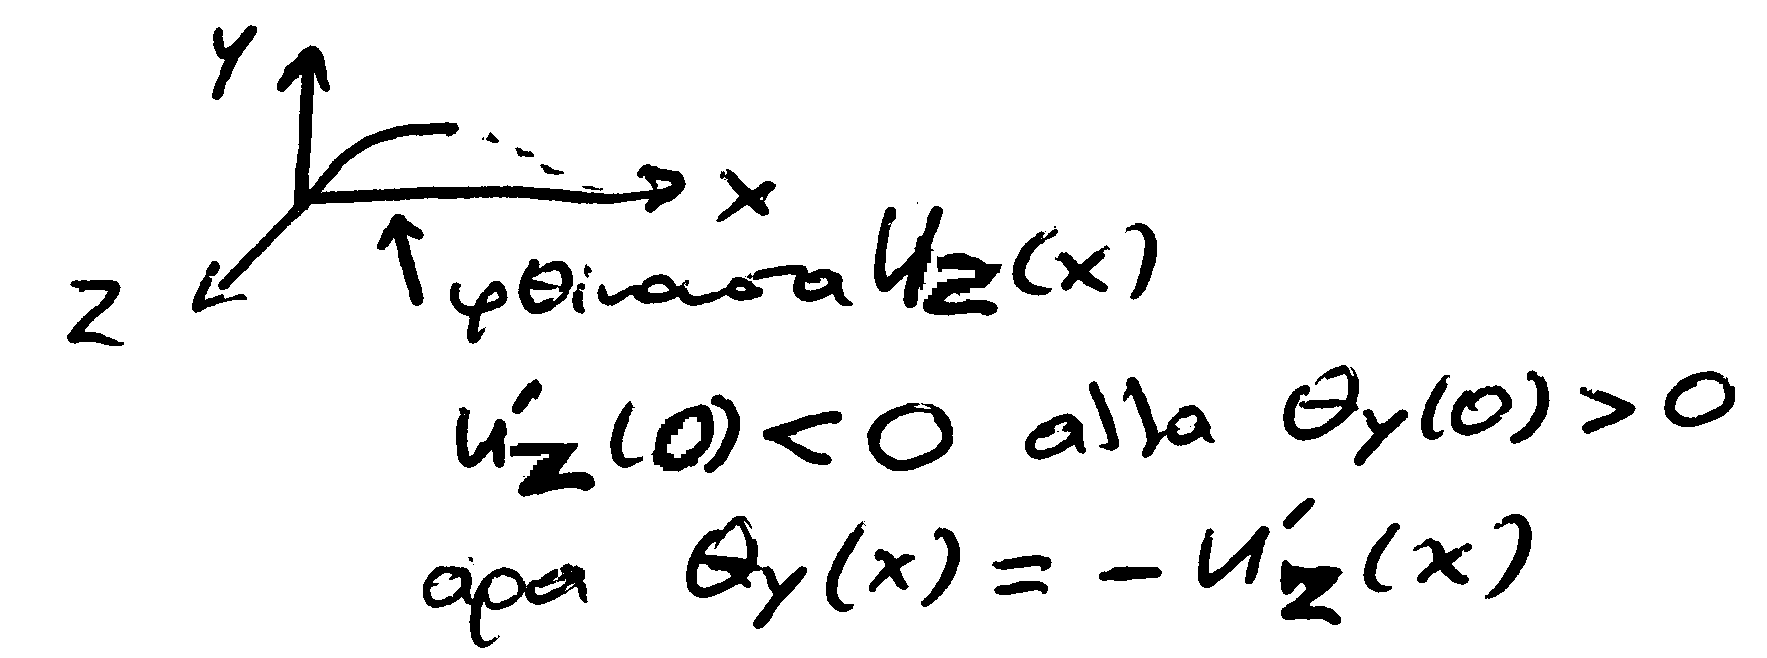 y
x
z
φθίνουσα u_z(x)
u'_z(0) < 0 αλλα θ_y(0) > 0
αρα θ_y(x) = - u'_z(x)